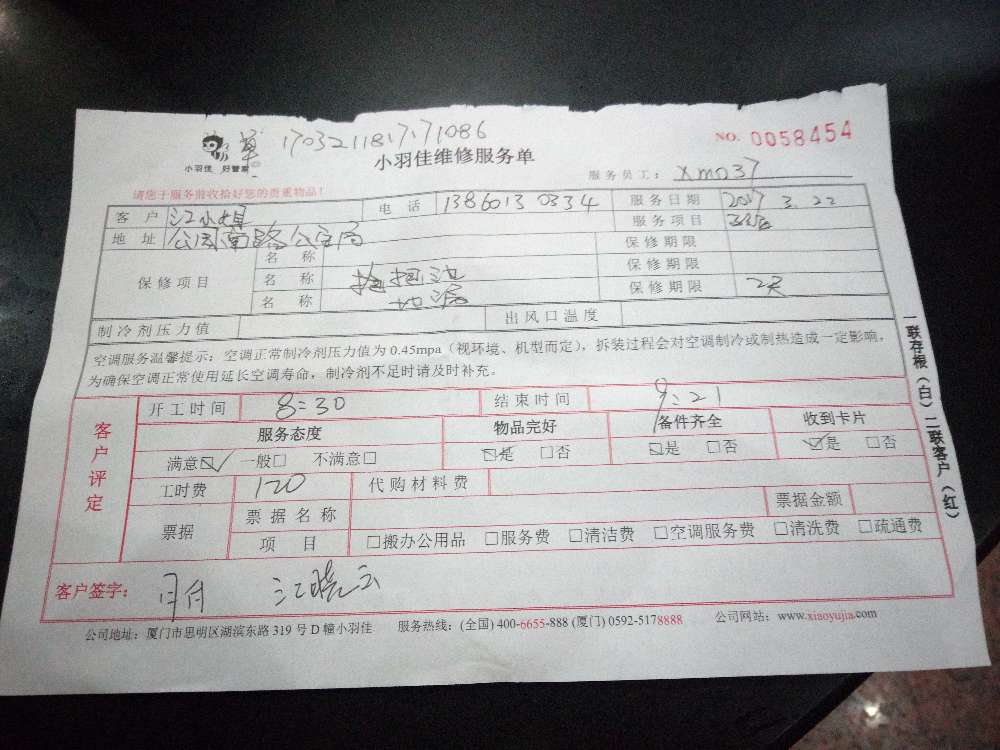 单 1703211817171086
NO. 0058454
小羽佳 好管家
小羽佳维修服务单
服务员工: xm037
请您于服务前收拾好您的贵重物品!
客户 江小姐 电话 13860130334 服务日期 2017 3.22
地址 公园南路公安局 服务项目
保修项目 名称 保修期限
名称 保修期限
名称 地漏 保修期限 2天
制冷剂压力值 出风口温度
空调服务温馨提示:空调正常制冷剂压力值为 0.45mpa(视环境、机型而定),拆装过程会对空调制冷或制热造成一定影响,
为确保空调正常使用延长空调寿命,制冷剂不足时请及时补充。
客户评定
开工时间 8:30 结束时间 9:21
服务态度 物品完好 备件齐全 收到卡片
满意☑ 一般□ 不满意□ ☑是 □否 ☑是 □否 ☑是 □否
工时费 120 代购材料费
票据 票据名称 票据金额
项目 □搬办公用品 □服务费 □清洁费 □空调服务费 □清洗费 □疏通费
客户签字: 月付 江晓云
公司地址:厦门市思明区湖滨东路 319 号 D 幢小羽佳 服务热线:(全国) 400-6655-888 (厦门) 0592-5178888 公司网站:www.xiaoyujia.com
一联存根(白)二联客户(红)